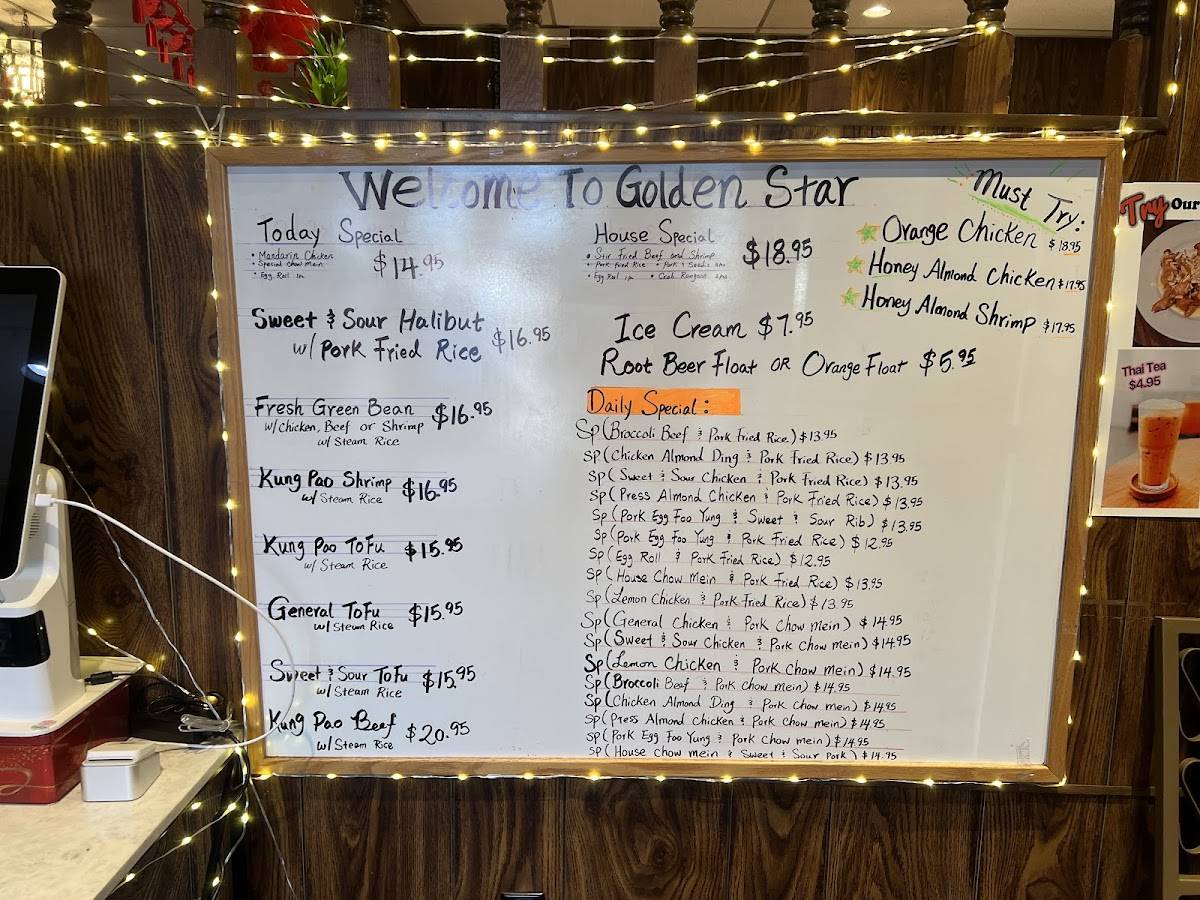 Welcome To Golden Star
Today Special
• Mandarin Chicken
• Special Chow Mein
• Egg Roll 1pc
$14.95
Sweet & Sour Halibut
w/ Pork Fried Rice
$16.95
Fresh Green Bean
w/ Chicken, Beef or Shrimp
w/ Steam Rice
$16.95
Kung Pao Shrimp
w/ Steam Rice
$16.95
Kung Pao ToFu
w/ Steam Rice
$15.95
General ToFu
w/ Steam Rice
$15.95
Sweet & Sour ToFu
w/ Steam Rice
$15.95
Kung Pao Beef
w/ Steam Rice
$20.95
House Special
• Stir Fried Beef and Shrimp
• Pork Fried Rice • Pork & Seeds
• Egg Roll 1pc • Crab Rangoon 2pcs
$18.95
Ice Cream $7.95
Root Beer Float OR Orange Float $5.95
Daily Special:
Sp (Broccoli Beef & Pork Fried Rice) $13.95
Sp (Chicken Almond Ding & Pork Fried Rice) $13.95
Sp (Sweet & Sour Chicken & Pork Fried Rice) $13.95
Sp (Press Almond Chicken & Pork Fried Rice) $13.95
Sp (Pork Egg Foo Yung & Sweet & Sour Rib) $13.95
Sp (Pork Egg Foo Yung & Pork Fried Rice) $12.95
Sp (Egg Roll & Pork Fried Rice) $12.95
Sp (House Chow Mein & Pork Fried Rice) $13.95
Sp (Lemon Chicken & Pork Fried Rice) $13.95
Sp (General Chicken & Pork Chow Mein) $14.95
Sp (Sweet & Sour Chicken & Pork Chow Mein) $14.95
Sp (Lemon Chicken & Pork Chow Mein) $14.95
Sp (Broccoli Beef & Pork Chow Mein) $14.95
Sp (Chicken Almond Ding & Pork Chow Mein) $14.95
Sp (Press Almond Chicken & Pork Chow Mein) $14.95
Sp (Pork Egg Foo Yung & Pork Chow Mein) $14.95
Sp (House Chow Mein & Sweet & Sour Pork) $14.95
Must Try:
Orange Chicken $18.95
Honey Almond Chicken $17.95
Honey Almond Shrimp $17.95
Try Our
Thai Tea
$4.95